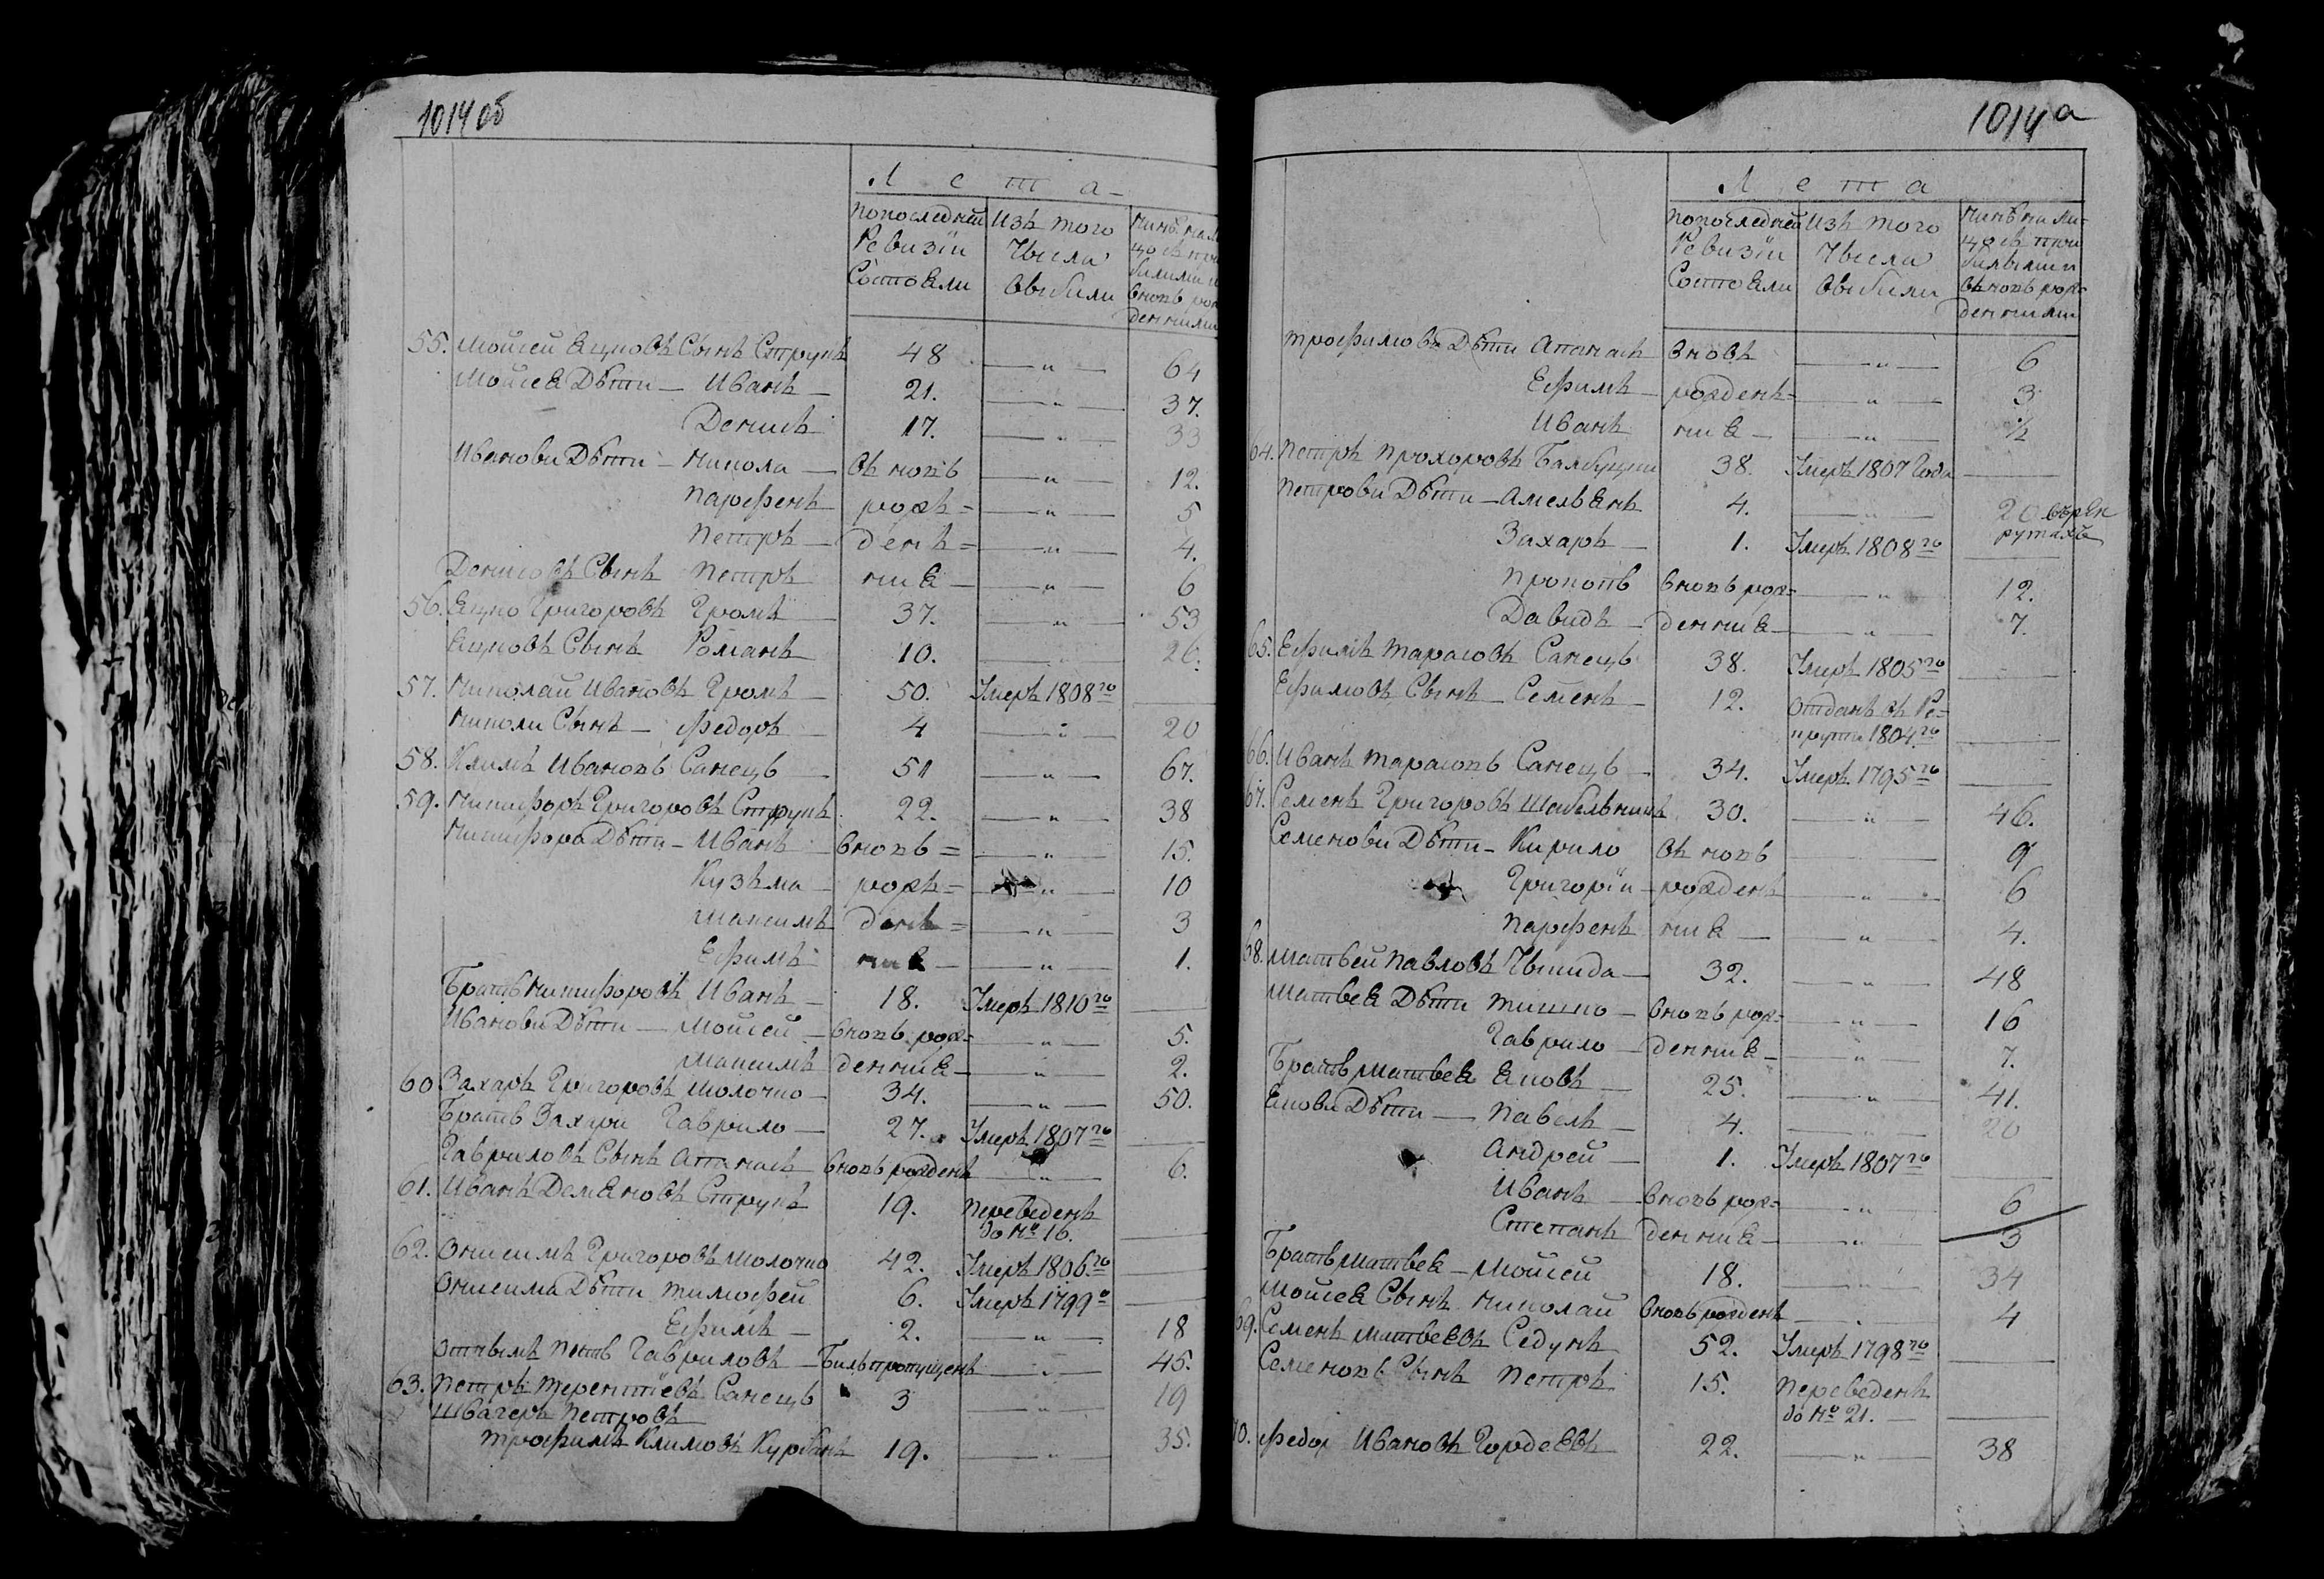 1014 об
Лета
по последней Ревизіи Состояли
Изъ того Числа выбыли
55. Моисей Яцковъ Сынъ Струкъ 48 — " — 64
Моисея Дѣти — Иванъ — 21. — " — 37.
Денисъ 17. — " — 33
Иванови Дѣти — Никола — въ новь — " — 12.
Парфенъ рож= — " — 5
Петръ — ден= — " — 4.
Денисовъ Сынъ Петръ ние — " — 6
56. Яцко Григоровъ Громъ 37. — " — 53
Яцковъ Сынъ Романъ 10. — " — 26.
57. Николай Ивановъ Громъ — 50. Умеръ 1808го —
Николи Сынъ — Федоръ 4 — " — 20
58. Климъ Ивановъ Санецъ 51 — " — 67.
59. Никифоръ Григоровъ Струкъ 22. — " — 38
Никифора Дѣти — Иванъ вновь= — " — 15.
Кузьма рож= — " — 10
Максимъ ден= — " — 3
Ефимъ ние — " — 1.
Братъ Никифоровъ Иванъ — 18. Умеръ 1810го —
Иванови Дѣти — Моисей — вновь рож= — " — 5.
Максимъ денние — " — 2.
60 Захаръ Григоровъ Молочко — 34. — " — 50.
Братъ Захари Гаврило — 27. Умеръ 1807го —
Гавриловъ Сынъ Апанасъ вновь рожденъ — " — 6.
61. Иванъ Демяновъ Струкъ 19. Переведенъ
до № 16. —
62. Онисимъ Григоровъ Молочко 42. Умеръ 1806го —
Онисима Дѣти Тимофей 6. Умеръ 1799о —
Ефимъ — 2. — " — 18
Гавриловъ — Билъ пропущенъ — " — 45.
63. Петръ Терентіевъ Санецъ 3 — " — 19
Швагеръ Петровъ
Трофимъ Климовъ 19. — " — 35.
1014 а
Лета
по последней Ревизіи Состояли
Изъ того Числа выбыли
Трофимови Дѣти Апанасъ вновь — " — 6
Ефимъ рожден= — " — 3
Иванъ ние — " — ½
64. Петръ Прохоровъ 38. Умеръ 1807 Года —
Петрови Дѣти — Амельянъ 4. — 20 въ рек
Захаръ — 1. Умеръ 1808го — рутахъ
Прокопъ вновь рож= — " — 12.
Давидъ — денние — " — 7.
65. Ефимъ Тарасовъ Санецъ 38. Умеръ 1805го —
Ефимовъ Сынъ — Семенъ — 12. Отданъ въ Ре=
крути 1804го —
66. Иванъ Тарасовъ Санецъ — 34. Умеръ 1795го —
67. Семенъ Григоровъ Шабельникъ 30. — " — 46.
Семенови Дѣти — Кирило въ новь — 9
Григорій — рожден — " — 6
Парфенъ ние — " — 4.
68. Матвей Павловъ Чвикида — 32. — " — 48
Матвея Дѣти Тишко — вновь рож= — " — 16
Гаврило — денние — " — 7.
Братъ Матвея Яковъ — 25. — " — 41.
Якови Дѣти — Павелъ — 4. — " — 20
Андрей — 1. Умеръ 1807го —
Иванъ — вновь рож= — " — 6
Степанъ денние — " — 3
Братъ Матвея — Моисей 18. — " — 34
Моисея Сынъ Николай вновь рожденъ — 4
69. Семенъ Матвеевъ Седунъ 52. Умеръ 1798го —
Семеновъ Сынъ Петръ 15. Переведенъ
до № 21. —
70. Федор Ивановъ Гордеевъ 22. — " — 38